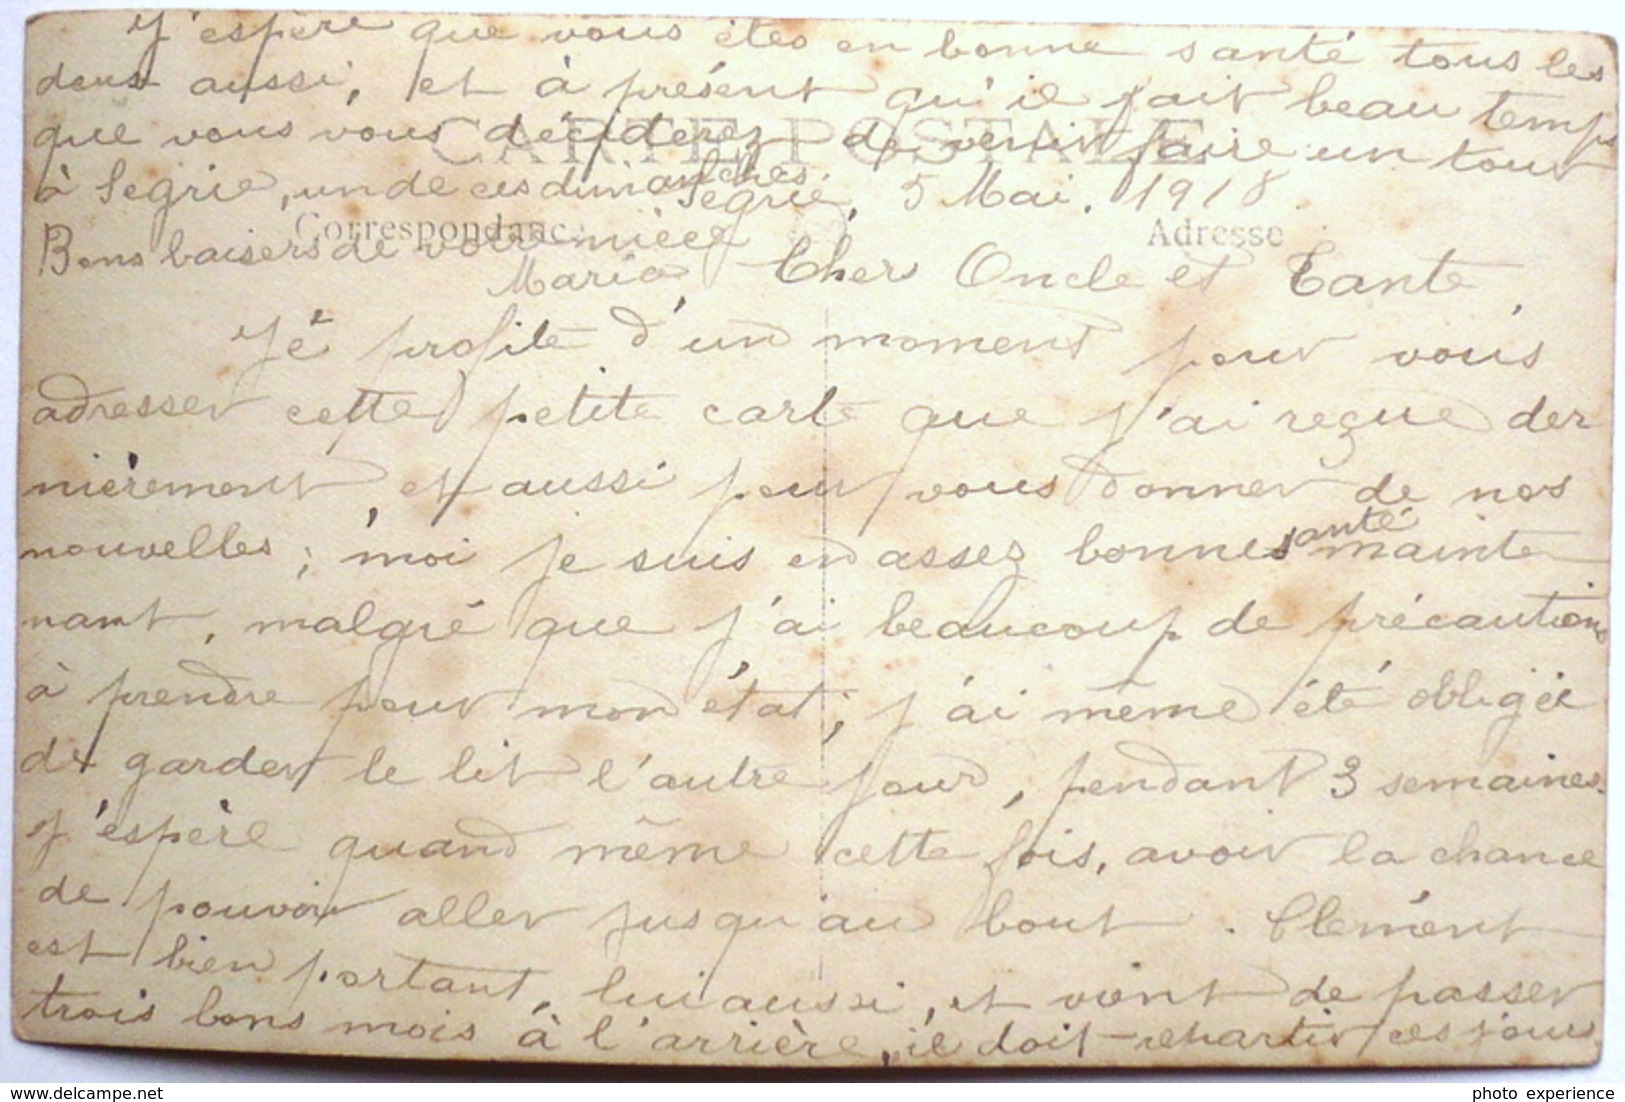 J'espère que vous êtes en bonne santé tous les
deux aussi, et à présent qu'il fait beau temps
que vous vous déciderez de venir faire un tour
à Segrie, un de ces dimanches
Bons baisers de votre nièce
Maria
CARTE POSTALE
Correspondance
Adresse
Segrie, 5 Mai. 1918.
Cher Oncle et Tante,
Je profite d'un moment pour vous
adresser cette petite carte que j'ai reçue der
nièrement, et aussi pour vous donner de nos
nouvelles; moi je suis en assez bonnes santé mainte
nant, malgré que j'ai beaucoup de précautions
à prendre pour mon état; j'ai même été obligée
de garder le lit l'autre jour, pendant 3 semaines.
J'espère quand même cette fois, avoir la chance
de pouvoir aller jusqu'au bout. Clément
est bien portant, lui aussi, et vient de passer
trois bons mois à l'arrière, il doit repartir ces jours
photo experience